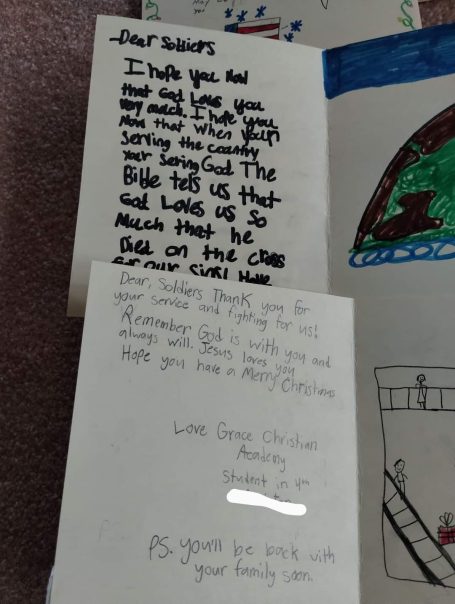 Dear Soldiers
I hope you Now
that God Loves you
very much. I hope you
Now that when your
Serving the country
your Sering God The
Bible tells us that
God Loves us so
Much that he
Died on the cross
for our sins! Have
Dear, Soldiers Thank you for
your service and fighting for us!
Remember God is with you and
always will. Jesus loves you
Hope you have a Merry Christmas
Love Grace Christian
Academy
Student in 4th
PS. you'll be back with
your family soon.